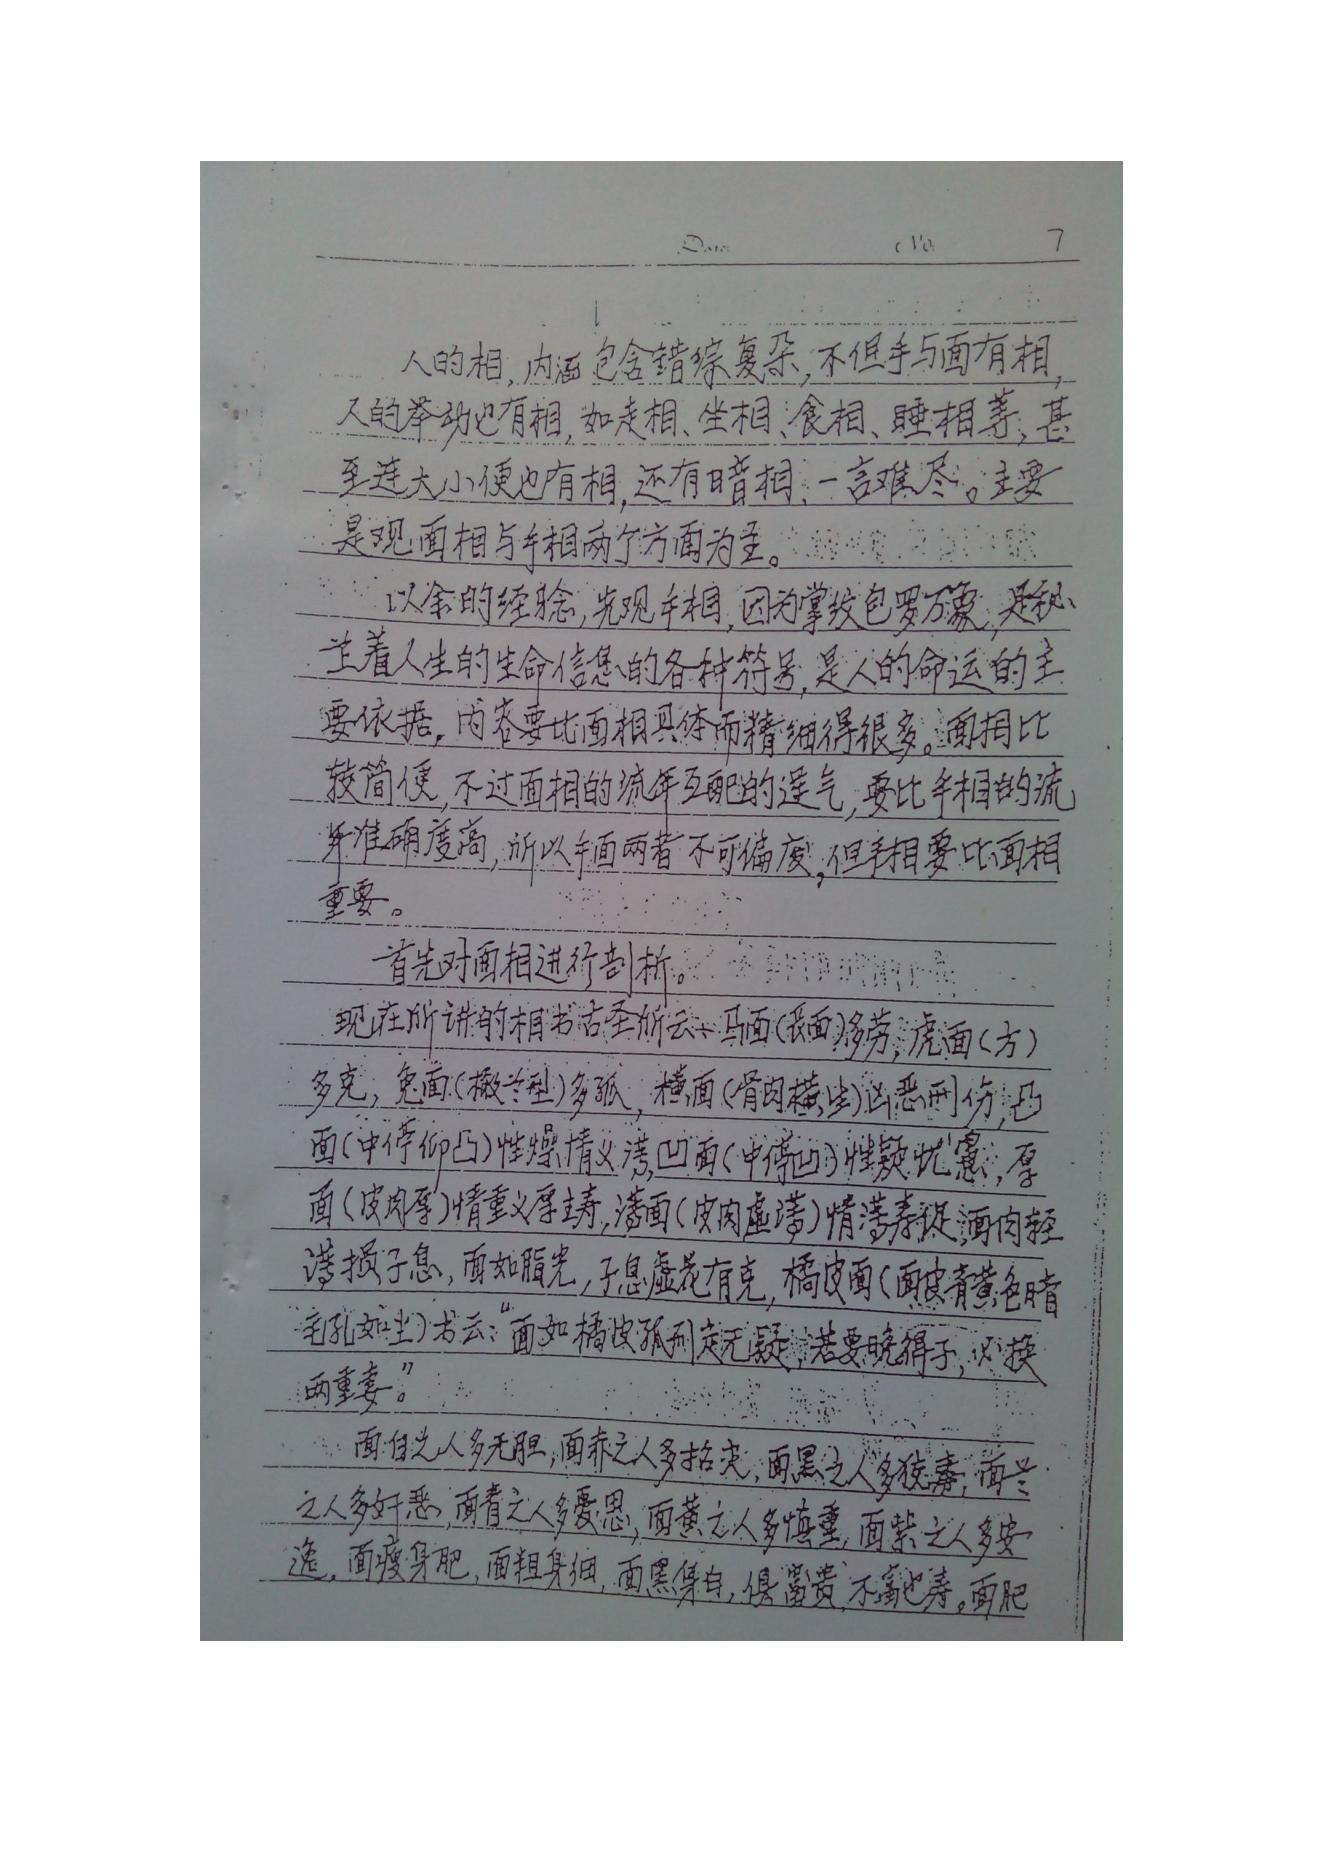 Date No. 7
人的相，内涵包含错综复杂，不但手与面有相，
人的举动也有相，如走相、坐相、食相、睡相等，甚
至连大小便也有相，还有暗相，一言难尽。主要
是观面相与手相两个方面为主。
以余的经验，先观手相，因为掌纹包罗万象，是秘
芷着人生的生命信息的各种符号，是人的命运的主
要依据，内容要比面相具体而精细得很多。面相比
较简便，不过面相的流年互配的运气，要比手相的流
年准确度高，所以手面两者不可偏废，但手相要比面相
重要。
首先对面相进行剖析。
现在所讲的相书古圣所云：马面（长面）多劳，虎面（方）
多克，兔面（橄兰型）多孤，横面（骨肉横生）凶恶刑伤，凸
面（中停仰凸）性燥情义薄，凹面（中停凹）性疑忧虑，厚
面（皮肉厚）情重义厚主寿，薄面（皮肉虚薄）情薄寿促，面肉轻
薄损子息，面如脂光，子息虚花有克，橘皮面（面皮青黄色暗
毛孔如尘）书云：“面如橘皮孤刑定无疑，若要晚得子，必换
两重妻。”
面白之人多无胆，面赤之人多招灾，面黑之人多狡毒，面兰
之人多奸恶，面青之人多忧思，面黄之人多慎重，面紫之人多安
逸，面瘦身肥，面粗身细，面黑身白，俱富贵，不富也寿。面肥